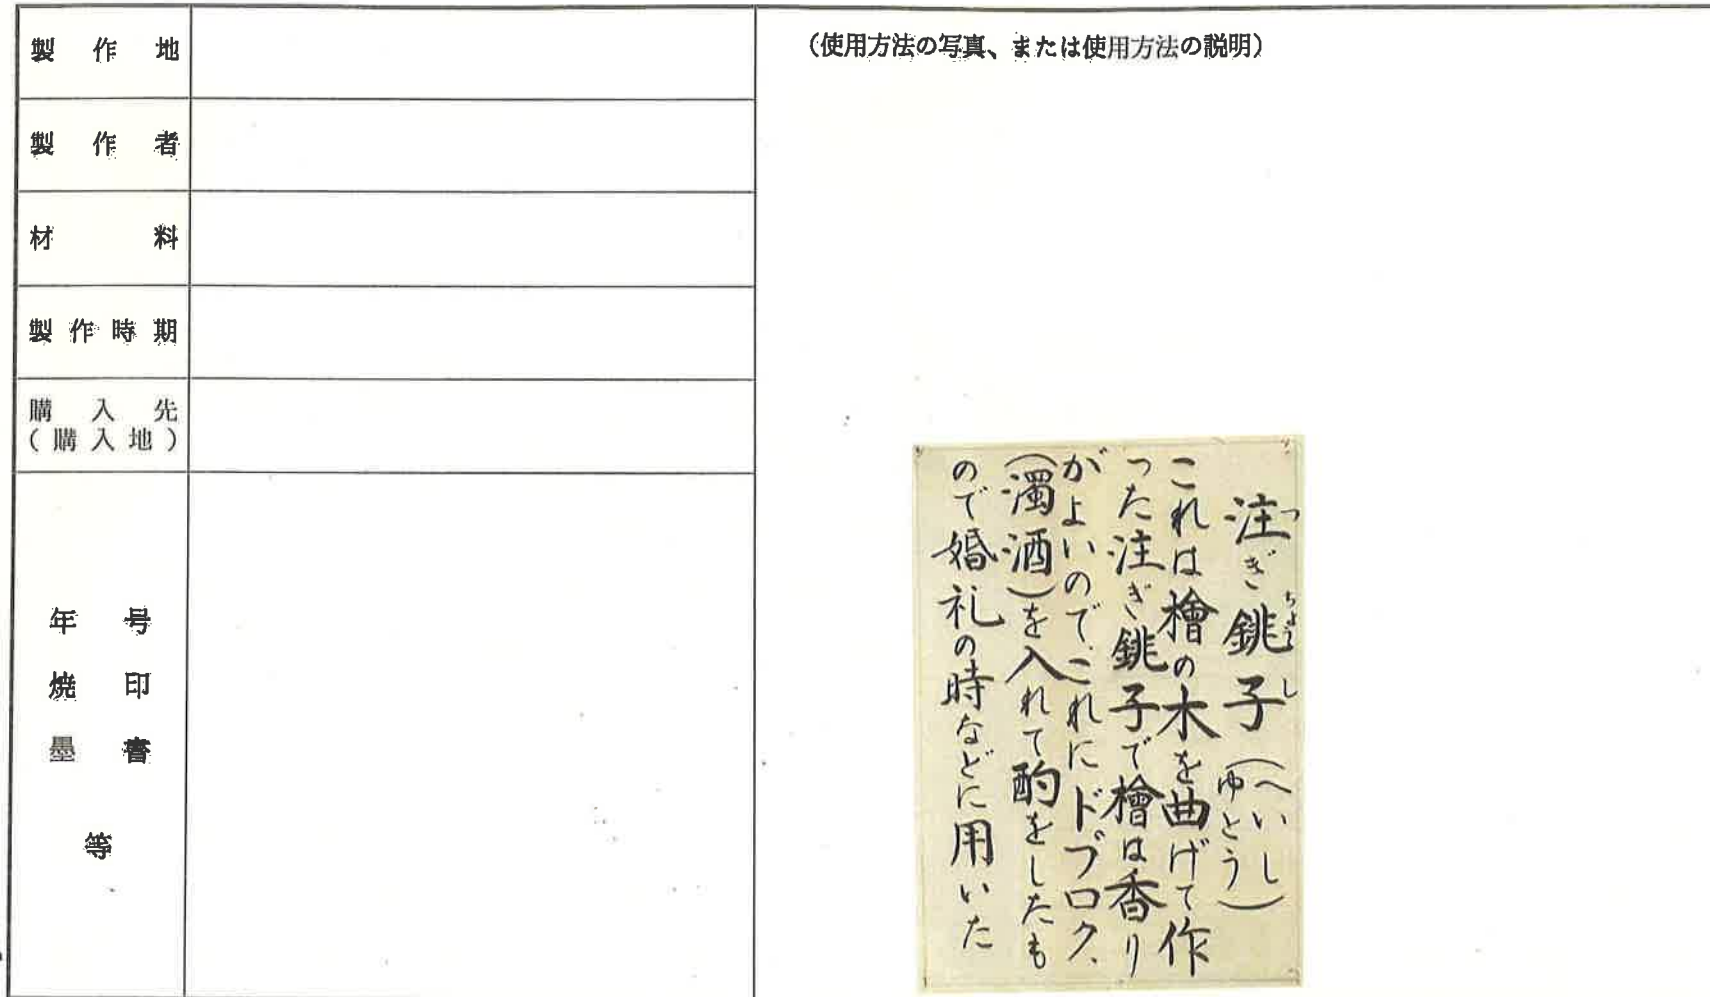 製作地
製作者
材料
製作時期
購入先
(購入地)
年号
焼印
墨書
等
(使用方法の写真、または使用方法の説明)
注ぎ銚子(へいし ゆとう)
つ ちょうし
これは檜の木を曲げて作
った注ぎ銚子で檜は香り
がよいので、これにドブロク、
(濁酒)を入れて酌をしたも
ので婚礼の時などに用いた